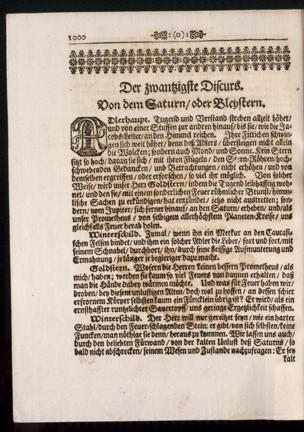 1000 :(o):
Der zwantzigste Discurs.
Von dem Saturn/ oder Bleystern.
Adlerhaupt. Tugend und Verstand streben allzeit höher/
und von einer Stuffen zur andern hinauf/ bis sie/ wie die Ja-
cobsleiter/ an den Himmel reichen. Ihre Fittichen schwin-
gen sich weit höher/ denn deß Adlers/ übersteigen nicht allein
die Wolcken/ sondern auch Mond/ und Sonne. Kein Stern
sitzt so hoch/ daran sie sich/ mit ihren Flügeln/ den hoch-
schwebenden Gedancken/ und Betrachtungen/ nicht erhöhen/ und von
demselben ergreiffen/ oder erforschen/ so viel ihr möglich. Von solcher
Weise/ wird unser Herr Goldstern/ indem die Tugend leibhafftig woh-
net/ und den sie/ mit einem sonderlichen Feuer rühmlicher Brunst/ himm-
lische Sachen zu erkündigen/ hat entzündet/ jetzo nicht austretten; son-
dern/ vom Jupiter/ sich ferner hinauf/ an den Saturn/ erheben/ und/ als
unser Prometheus/ von selbigem allerhöchstem Planeten-Kreise/ uns
gleichfalls Feuer herab holen.
Winterschild. Zumal/ wenn ihn ein Merkur an den Caucasi-
schen Felsen bindet/ und ihm ein solcher Adler die Leber/ fort und fort/ mit
seinem Schnabel/ durchbort/ ihn/ durch seine fleissige Aufmunterung und
Ermahnung/ je länger je begieriger dazu macht.
Goldstern. Wollen die Herren keinen bessern Prometheus/ als
mich/ haben; werden sie kaum so viel Feuers von dannen erhalten/ daß
man die Hände dabey wärmen möchte. Und was für Feuer haben wir/
droben/ bey diesem unlustigen Alten/ doch wol zu hoffen/ an dessen schier
erfrornem Körper selbsten kaum ein Füncklein übrig ist? Er wird/ als ein
ernsthaffter runtzlichter Sauertopff/ uns geringe Ergetzlichkeit schaffen.
Winterschild. Der Herr will nur gereitzet seyn/ wie ein harter
Stahl/ durch den Feuer-schlagenden Stein: er gibt/ von sich selbsten/ keine
Funcken/ man nöthige sie denn/ heraus zu kommen. Wir lassen uns auch/
durch den beliebten Fürwand/ von der kalten Unlust deß Saturns/ so
bald nicht abschrecken/ seinem Wesen und Zustande nachzufragen: Er sey
kalt